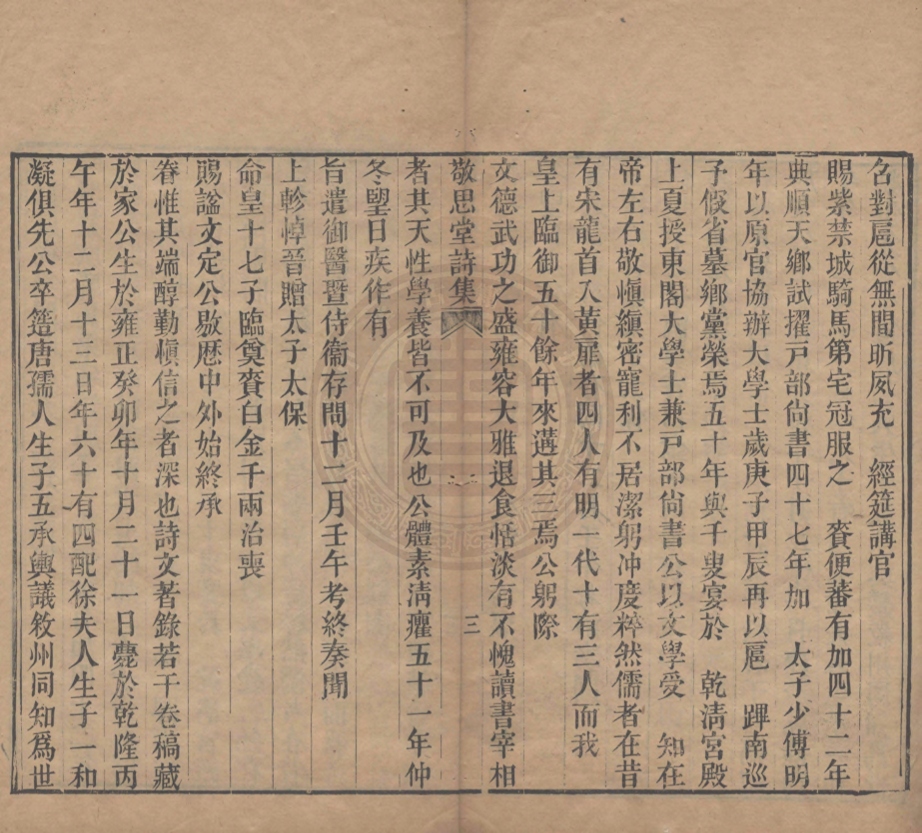 名對扈從無間昕夙充 經筵講官
賜紫禁城騎馬第宅冠服之 賚便蕃有加四十二年
典順天鄉試擢戸部尙書四十七年加 太子少傅明
年以原官協辦大學士歲庚子甲辰再以扈 蹕南巡
予假省墓鄉黨榮焉五十年與千叟宴於 乾淸宮殿
上夏授東閣大學士兼戸部尙書公以文學受 知在
帝左右敬愼縝密寵利不居潔躬沖度粹然儒者在昔
有宋龍首入黃扉者四人有明一代十有三人而我
皇上臨御五十餘年來遘其三焉公躬際
文德武功之盛雍容大雅退食恬淡有不愧讀書宰相
敬思堂詩集 三
者其天性學養皆不可及也公體素淸癯五十一年仲
冬朢日疾作有
旨遣御醫暨侍衞存問十二月壬午考終奏聞
上軫悼晉贈太子太保
命皇十七子臨奠賚白金千兩治喪
賜謚文定公敭歴中外始終承
眷惟其端醇勤愼信之者深也詩文著錄若干卷稿藏
於家公生於雍正癸卯年十月二十一日薨於乾隆丙
午年十二月十三日年六十有四配徐夫人生子一和
凝俱先公卒簉唐孺人生子五承輿議敘州同知爲世